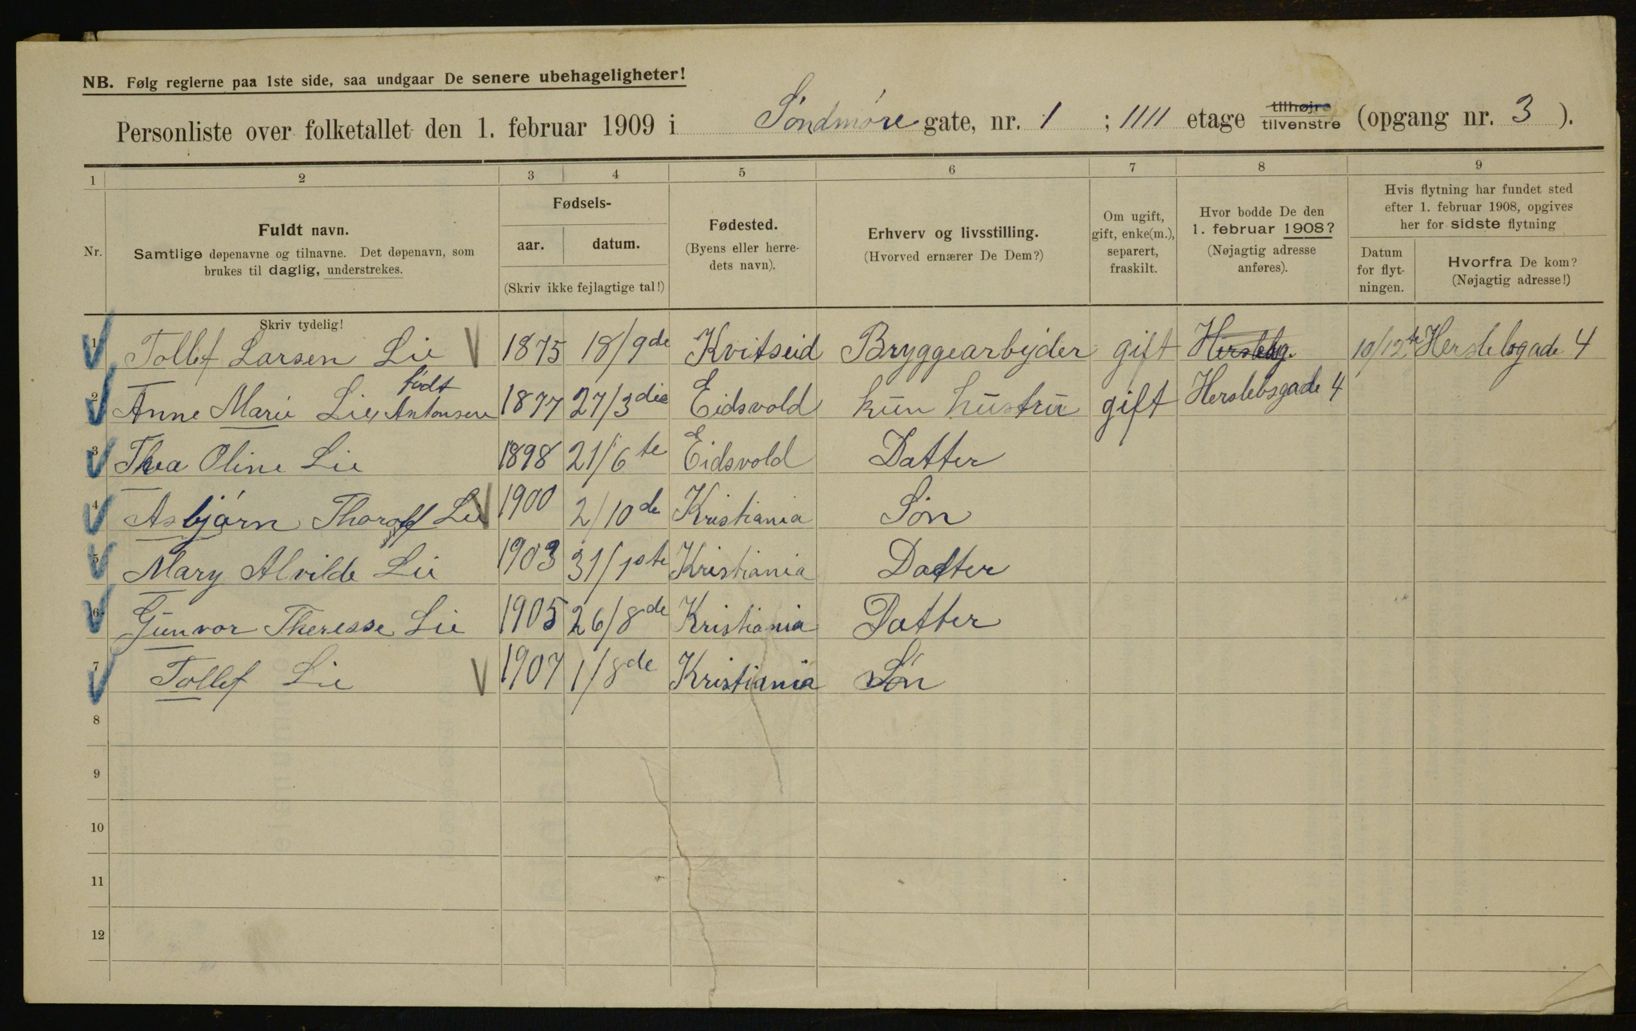 NB. Følg reglerne paa 1ste side, saa undgaar De senere ubehageligheter!
Personliste over folketallet den 1. februar 1909 i Söndmöre gate, nr. 1 ; 1111 etage tilhøjre tilvenstre (opgang nr. 3 ).
1 2 3 4 5 6 7 8 9
Nr.
Fuldt navn.
Samtlige døpenavne og tilnavne. Det døpenavn, som
brukes til daglig, understrekes.
Skriv tydelig!
Fødsels-
aar. datum.
(Skriv ikke fejlagtige tal!)
Fødested.
(Byens eller herre-
dets navn).
Erhverv og livsstilling.
(Hvorved ernærer De Dem?)
Om ugift,
gift, enke(m.),
separert,
fraskilt.
Hvor bodde De den
1. februar 1908?
(Nøjagtig adresse
anføres).
Hvis flytning har fundet sted
efter 1. februar 1908, opgives
her for sidste flytning
Datum
for flyt-
ningen.
Hvorfra De kom?
(Nøjagtig adresse!)
1 Tollef Larsen Lie 1875 18/9de Kvitseid Bryggearbejder gift Herslebg. 10/12te Herslebsgade 4
født
2 Anne Marie Lie, Antonsen 1877 27/3die Eidsvold kun hustru gift Herslebsgade 4
3 Thea Oline Lie 1898 21/6te Eidsvold Datter
4 Asbjörn Thorolf Lie 1900 2/10de Kristiania Sön
5 Mary Alvilde Lie 1903 31/10te Kristiania Datter
6 Gunvor Theresse Lie 1905 26/8de Kristiania Datter
7 Tollef Lie 1907 1/8de Kristiania Sön
8
9
10
11
12